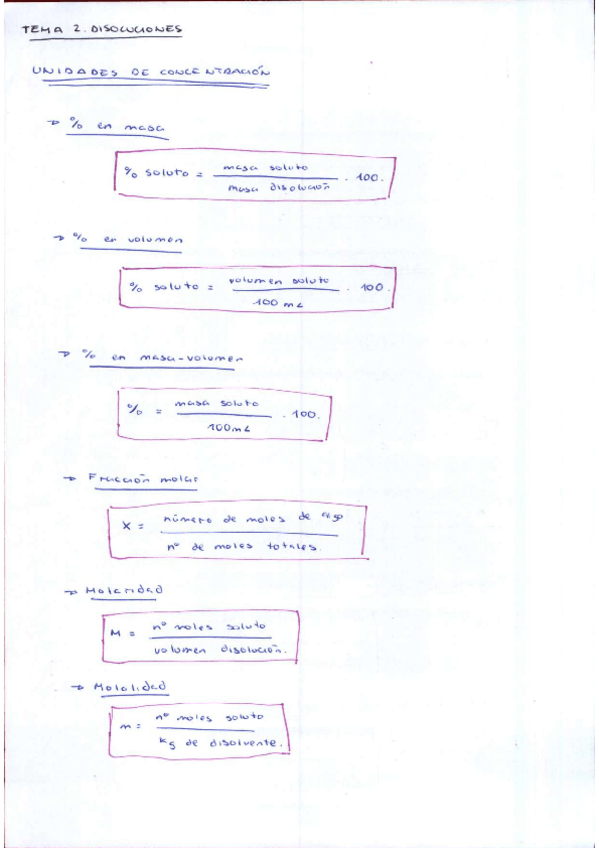 TEMA 2. DISOLUCIONES
UNIDADES DE CONCENTRACIÓN
→ % en masa
% soluto = masa soluto / masa disolución · 100.
→ % en volumen
% soluto = volumen soluto / 100 mL · 100.
→ % en masa-volumen
% = masa soluto / 100mL · 100.
→ Fracción molar
X = número de moles de algo / nº de moles totales.
→ Molaridad
M = nº moles soluto / volumen disolución.
→ Molalidad
m = nº moles soluto / kg de disolvente.